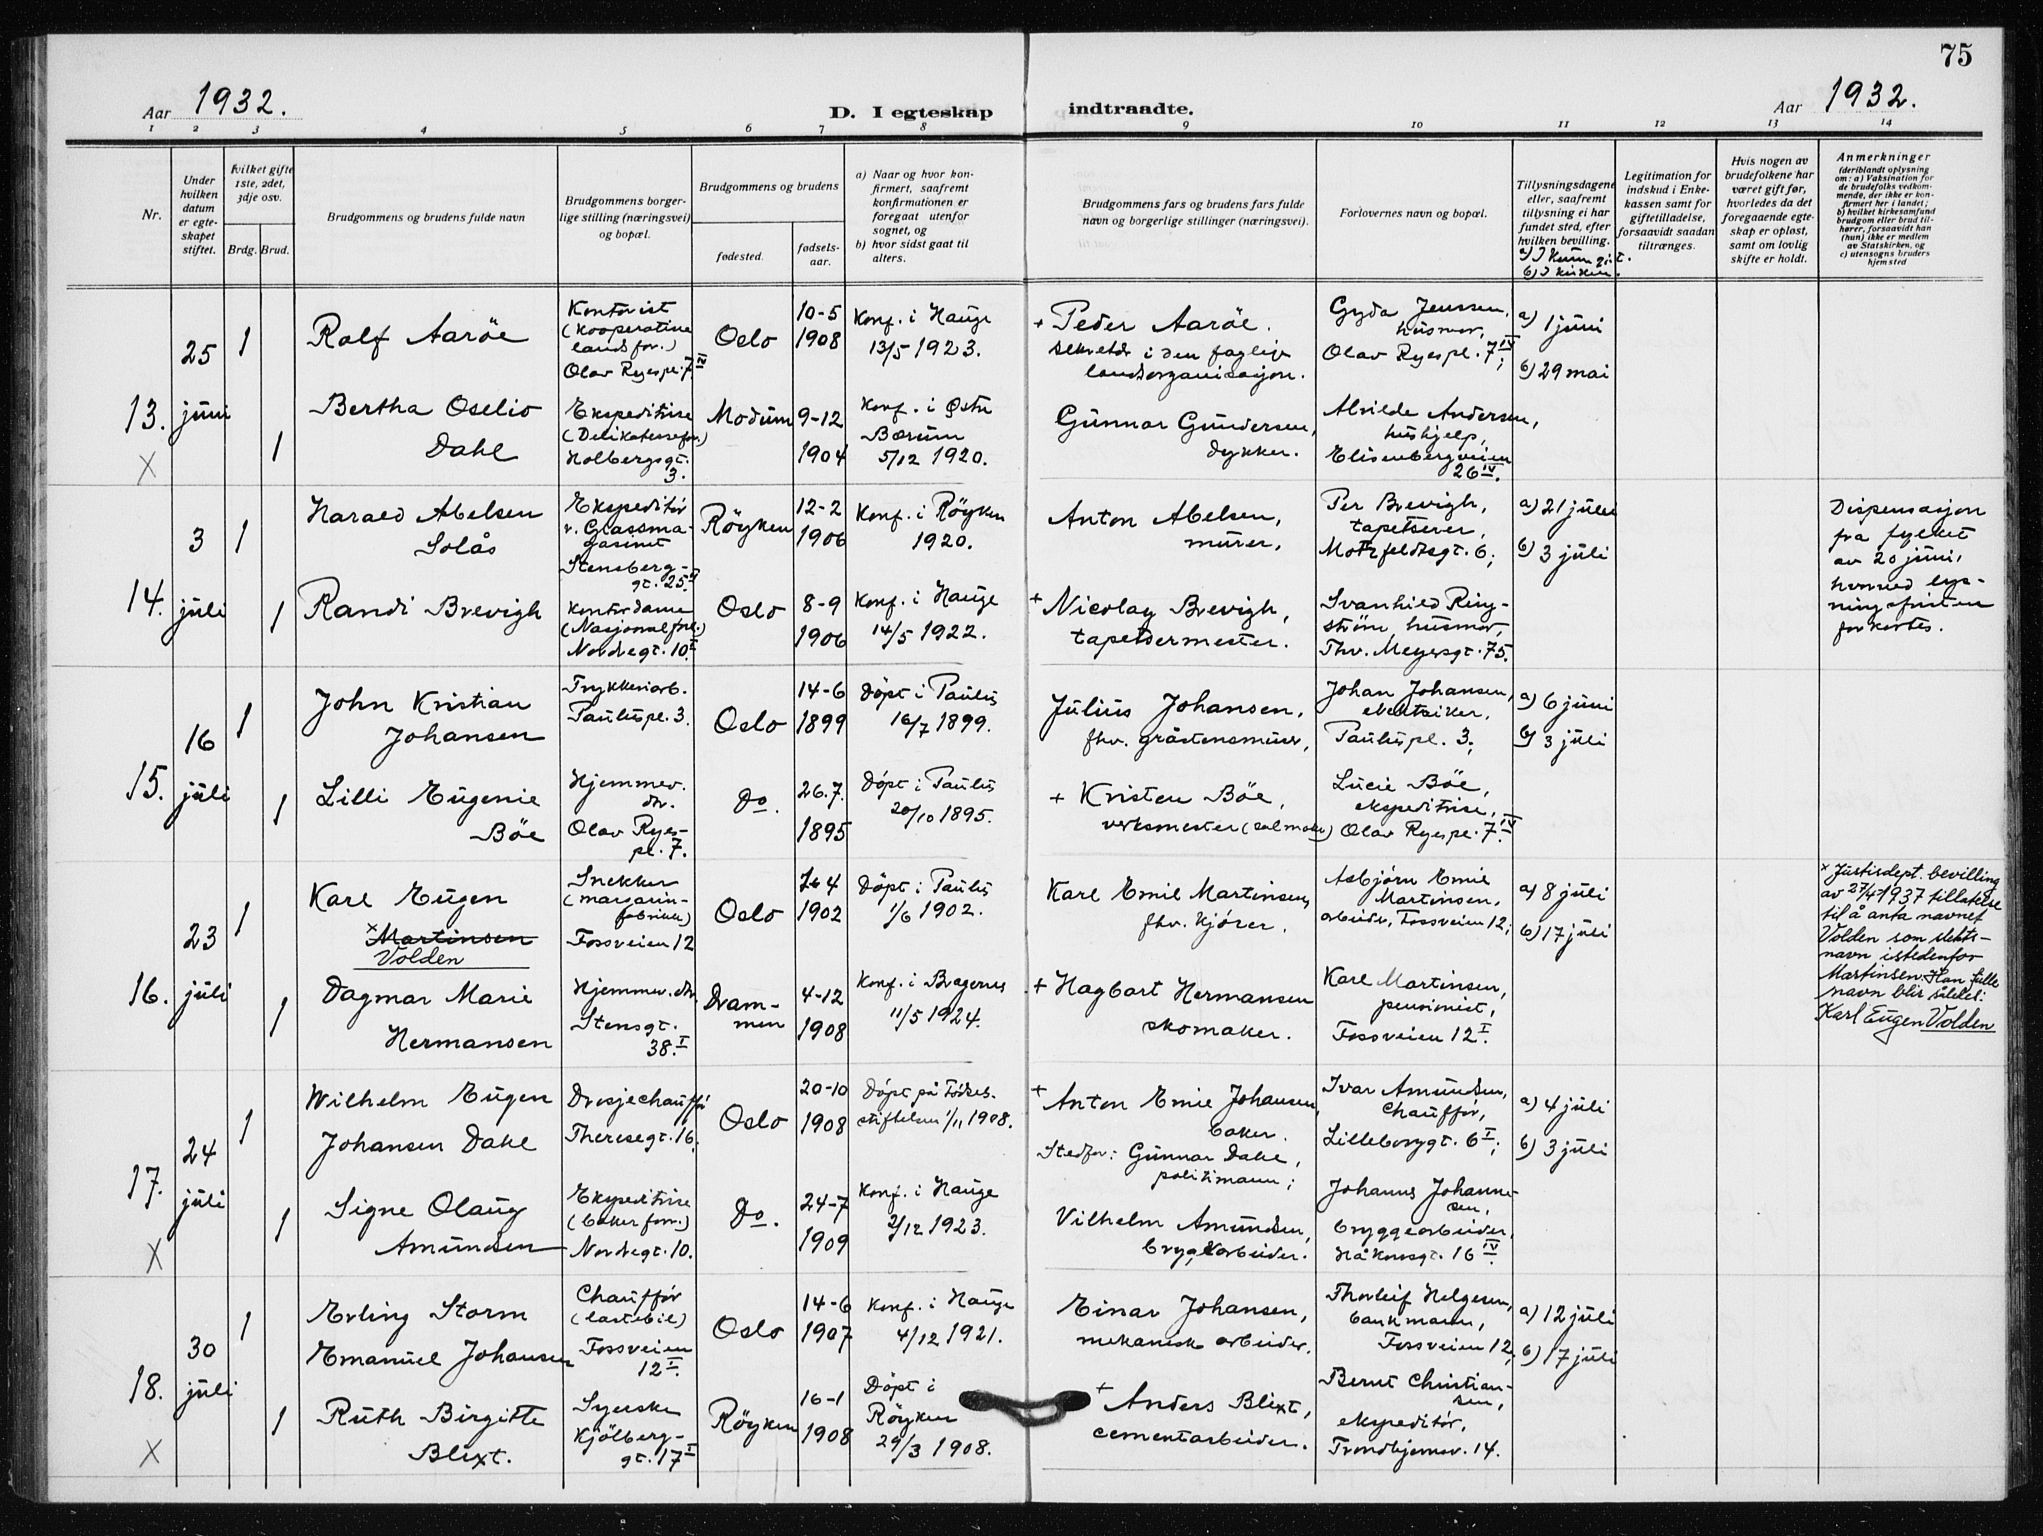 75
Aar 1932.
D. I egteskap indtraadte.
Aar 1932.
1 2 3 4 5 6 7 8 9 10 11 12 13 14
Nr.
Under
hvilken
datum
er egte-
skapet
stiftet.
hvilket gifte
1ste, 2det,
3dje osv.
Brdg. Brud.
Brudgommens og brudens fulde navn
Brudgommens borger-
lige stilling (næringsvei)
og bopæl.
Brudgommens og brudens
fødested.
fødsels-
aar.
a) Naar og hvor kon-
firmert, saafremt
konfirmationen er
foregaat utenfor
sognet, og
b) hvor sidst gaat til
alters.
Brudgommens fars og brudens fars fulde
navn og borgerlige stillinger (næringsvei).
Forlovernes navn og bopæl.
Tillysningsdagene
eller, saafremt
tillysning ei har
fundet sted, efter
hvilken bevilling.
b) I kirken.
Legitimation for
indskud i Enke-
kassen samt for
giftetilladelse,
forsaavidt saadan
tiltrænges.
Hvis nogen av
brudefolkene har
været gift før,
hvorledes da det
foregaaende egte-
skap er opløst,
samt om lovlig
skifte er holdt.
Anmerkninger
(deriblandt oplysning
om: a) Vaksination for
de brudefolks vedkom-
mende, der ikke er kon-
firmert her i landet;
b) hvilket kirkesamfund
brudgom eller brud til-
hører, forsaavidt han
(hun) ikke er medlem
av Statskirken, og
c) utensogns bruders
hjemsted
13.
X
25
juni
1
Rolf Aaröe
Kontorist
(Kooperative
landsfor.)
Olav Ryespl. 7 IV
Oslo
10-5
1908
Konf. i Hauge
13/5 1923.
+ Peder Aaröe.
sekretær i den faglige
landsorganisasjon.
Gyda Jenssen,
husmor,
Olav Ryespl. 7 IV;
a) 1 juni
b) 29 mai
1
Bertha Oselio
Dahl
Ekspeditrise
(Delikatessefor.)
Holbergsgt.
3.
Modum
9-12
1904
Konf. i Östre
Bærum
5/12 1920.
Gunnar Gundersen,
dykker.
Alvilde Andersen,
hushjelp,
Elisenbergveien
26 IV.
14.
3
juli
1
Harald Abelsen
Solås
Ekspeditör
v. Glassma-
gasinet
Stensberg-
gt. 25
Röyken
12-2
1906
Konf. i Röyken
1920.
Anton Abelsen,
murer.
Per Brevigh,
tapetserer,
Motzfeldtsgt. 6;
a) 21 juli
b) 3 juli
Dispensasjon
fra fylket
av 20 juni,
hvorved lys-
ningsfristen
forkortes.
1
Randi Brevigh
Kontordame
(Nasjonalforl.)
Nordregt. 10 I
Oslo
8-9
1906
Konf. i Hauge
14/5 1922.
+ Nicolay Brevigh,
tapetsermester.
Svanhild Ring-
ström husmor,
Thv. Meyersgt. 75.
15.
16
juli
1
John Kristian
Johansen
Trykkeriarb.
Pauluspl. 3.
Oslo
14-6
1899
Döpt i Paulus
16/7 1899.
Julius Johansen,
fhv. gråstensmurer,
Johan Johansen,
elektriker,
Pauluspl. 3;
a) 6 juni
b) 3 juli
1
Lilli Eugenie
Böe
Hjemmev.
dtr.
Olav Ryes-
pl. 7.
Do.
26.7.
1895
Döpt i Paulus
20/10 1895.
+ Kristen Böe,
verksmester (salmaker)
Lucie Böe,
ekspeditrise,
Olav Ryespl. 7 IV
16.
23
juli
1
Karl Eugen
x Martinsen
Volden
Snekker
(margarin-
fabrikk)
Fossveien 12
Oslo
1902
Döpt i Paulus
1/6 1902.
Karl Emil Martinsen,
fhv. kjörer.
Asbjörn Emil
Martinsen,
arbeider, Fossveien 12;
a) 8 juli
b) 17 juli
x Justisdept. bevilling
av 27/4 1937 tillatelse
til å anta navnet
Volden som slekts-
navn istedenfor
Martinsen. Han fulle
navn blir således:
Karl Eugen Volden
1
Dagmar Marie
Hermansen
Hjemmev. dtr
Stensgt.
38. I
Dram-
men
4-12
1908
Konf. i Bragernes
11/5 1924.
+ Hagbart Hermansen
skomaker.
Karl Martinsen,
pensionist,
Fossveien 12 I.
17.
X
24
juli
1
Wilhelm Eugen
Johansen Dahl
Drosjechaufför
Theresegt. 16.
Oslo
20-10
1908
Döpt på Födsels-
stiftelsen 1/11 1908.
+ Anton Emil Johansen,
baker.
Stedfar: Gunnar Dahl,
politimann;
Ivar Amundsen,
Chaufför,
Lilleborggt. 6 I;
a) 4 juli
b) 3 juli
1
Signe Olaug
Amundsen
Ekspeditrise
(bakerforr.)
Nordregt. 10.
Do.
24-7
1909
Konf. i Hauge
2/12 1923.
Vilhelm Amundsen,
bryggearbeider.
Johannes Johanne-
sen,
bryggearbeider,
Håkonsgt. 16 IV.
18.
X
30
juli
1
Erling Storm
Emanuel Johansen
Chaufför
(lastebil)
Fossveien
12 I.
Oslo
14-6
1907
Konf. i Hauge
4/12 1921.
Einar Johansen,
mekanisk arbeider.
Thorleif Helgesen,
bankmann,
Fossveien 12;
a) 12 juli
b) 17 juli
1
Ruth Birgitte
Blixt.
Syerske
Kjölberg-
gt. 17 I
Röyken
16-1
1908
Döpt i
Röyken
29/3 1908.
+ Anders Blixt,
cementarbeider.
Bernt Christian-
sen,
ekspeditör,
Trondhjemsv. 14.